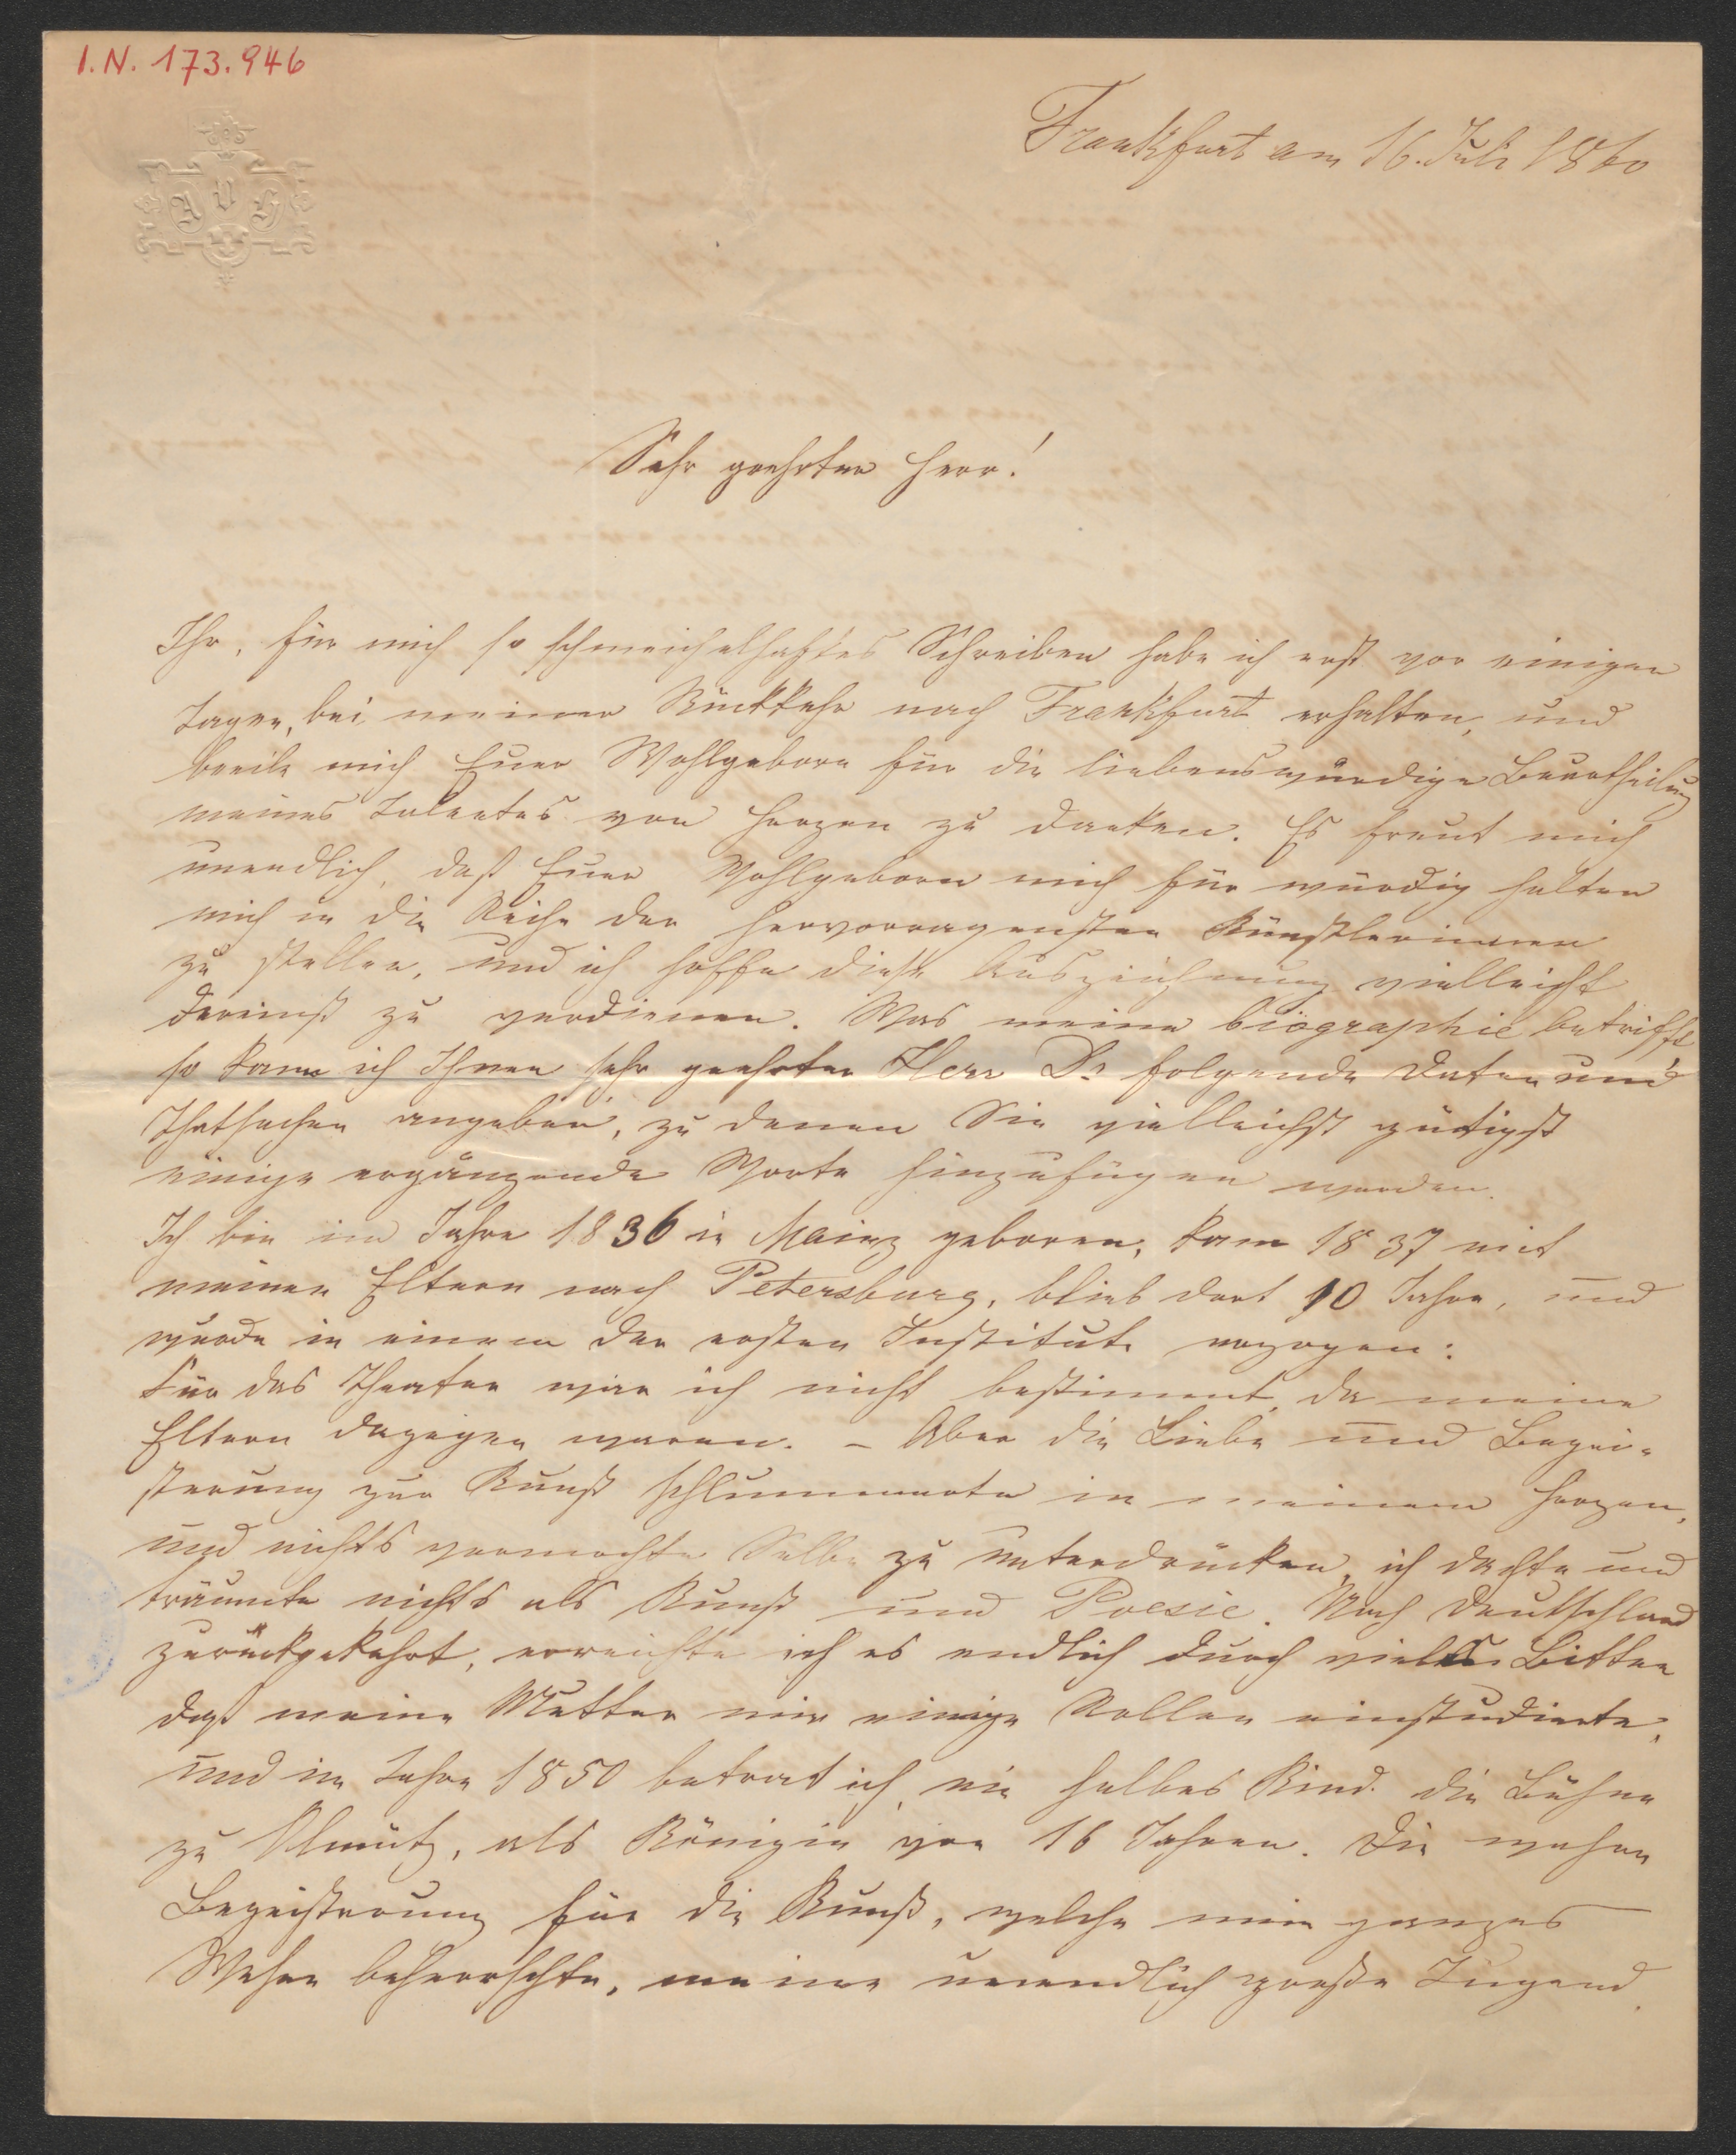 I.N. 173.946
A V H
Frankfurt am 16. Juli 1860
Sehr geehrter Herr!
Ihr, für mich so schmeichelhaftes Schreiben habe ich erst vor einigen
Tagen, bei meiner Rückkehr nach Frankfurt erhalten, und
beeile mich Euer Wohlgeborn für die liebenswürdige Beurtheilung
meines Talentes von Herzen zu danken. Es freut mich
unendlich, daß Euer Wohlgeborn mich für würdig halten
mich in die Reihe der hervorragensten Künstlerinnen
zu stellen, und ich hoffe diese Auszeichnung vielleicht
dereinst zu verdienen. Was meine biographie betrifft
so kann ich Ihnen sehr geehrter Herr Dr folgende Daten und
Thatsachen angeben, zu denen Sie vielleicht gütigst
einige ergänzende Worte hinzufügen werden.
Ich bin im Jahre 1836 in Mainz geboren, kam 1837 mit
meinen Eltern nach Petersburg, blieb dort 10 Jahre, und
wurde in einem der ersten Institute erzogen:
Für das Theater war ich nicht bestimmt, da meine
Eltern dagegen waren. – Aber die Liebe und Begei-
sterung zur Kunst schlummerte in meinem Herzen,
und nichts vermochte Selbe zu unterdrücken, ich dachte und
träumte nichts als Kunst und Poesie. Nach Deutschland
zurückgekehrt, erreichte ich es endlich durch vieles Bitten
daß meine Mutter mir einige Rollen einstudierte,
und im Jahre 1850 betrat ich, ein halbes Kind die Bühne
zu Olmütz, als Königin von 16 Jahren. Die wahre
Begeisterung für die Kunst, welche mein ganzes
Wesen beherrschte, meine unendlich große Jugend